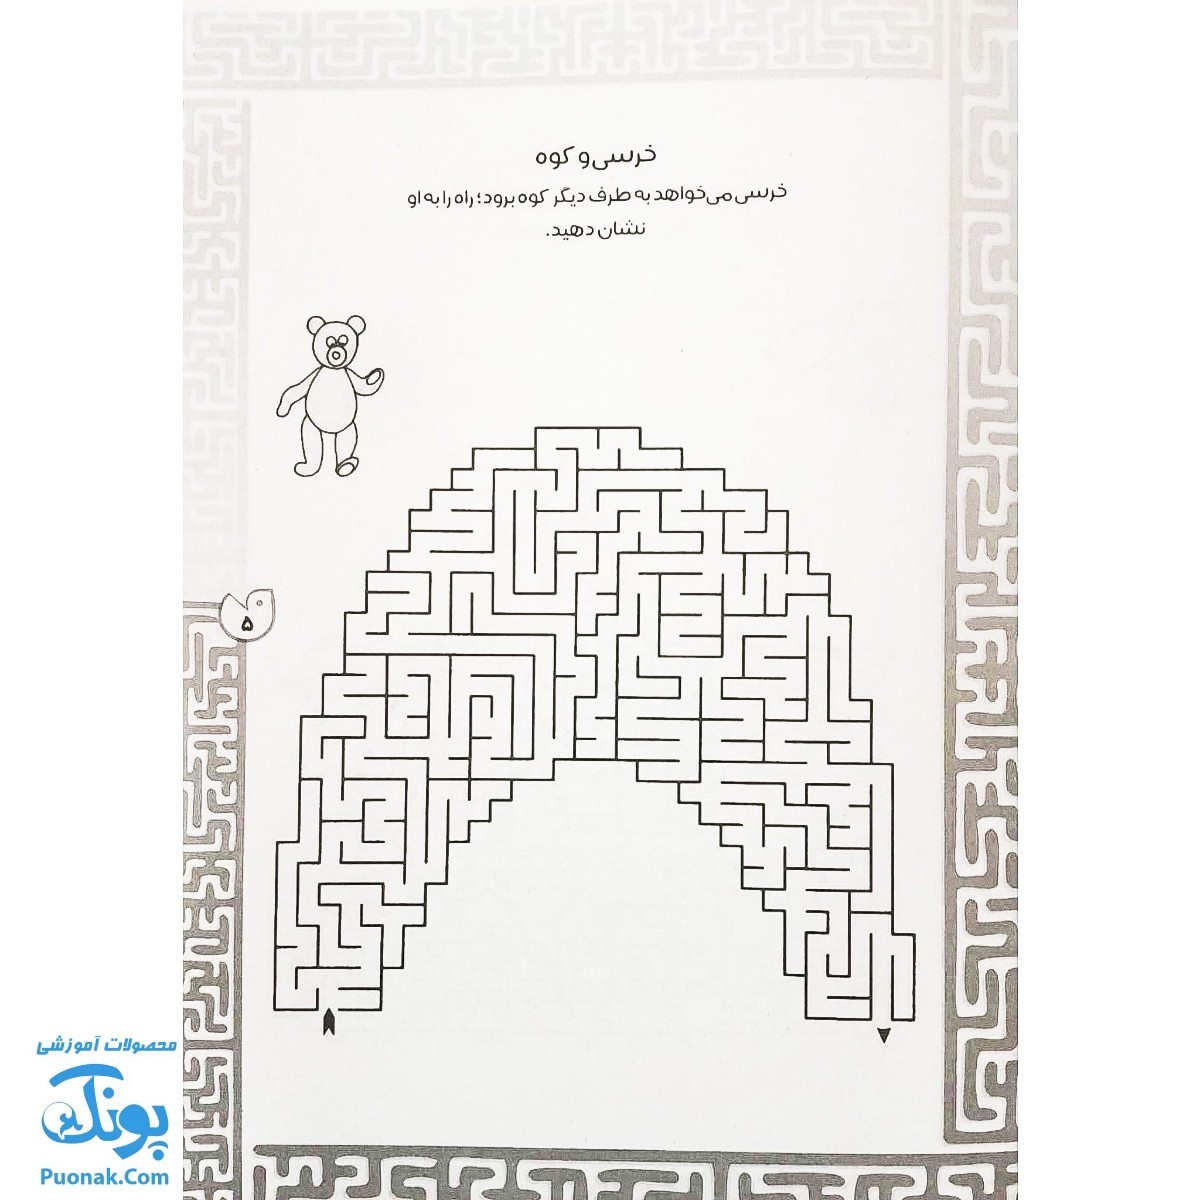 خرسی و کوه
خرسی می‌خواهد به طرف دیگر کوه برود؛ راه را به او
نشان دهید.
۵
محصولات آموزشی
پونک
Puonak.Com